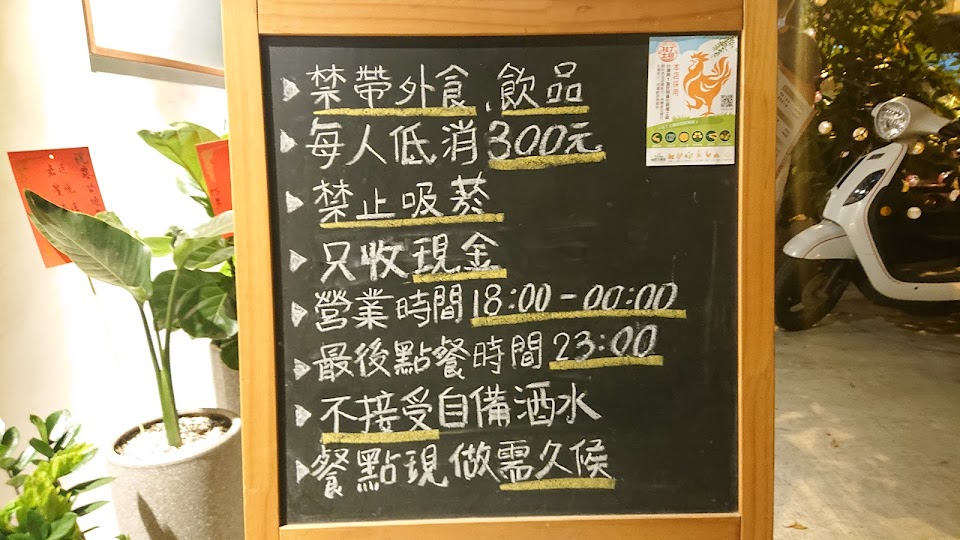 禁帶外食、飲品
每人低消300元
禁止吸菸
只收現金
營業時間18:00-00:00
最後點餐時間23:00
不接受自備酒水
餐點現做需久候
本店採用